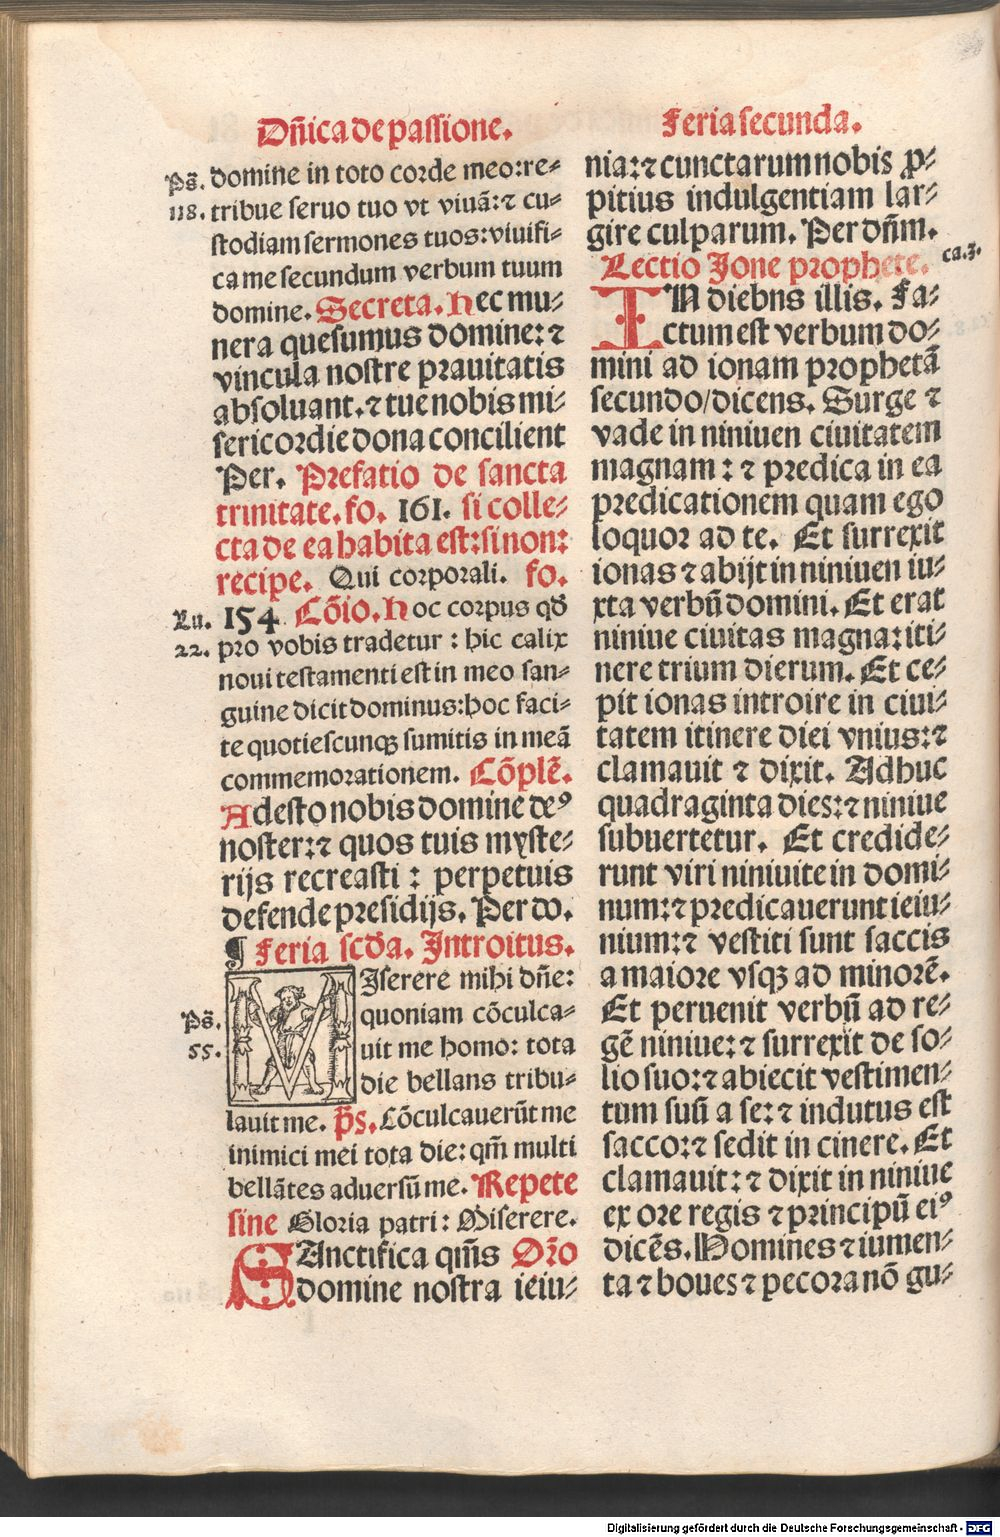 Dn̄ica de passione.
Ps̄. domine in toto corde meo: re⸗
118. tribue seruo tuo vt viuā: ⁊ cu⸗
stodiam sermones tuos: viuifi⸗
ca me secundum verbum tuum
domine. Secreta. Hec mu⸗
nera quesumus domine: ⁊
vincula nostre prauitatis
absoluant. ⁊ tue nobis mi⸗
sericordie dona concilient
Per. Prefatio de sancta
trinitate. fo. 161. si colle⸗
cta de ea habita est: si non:
recipe. Qui corporali. fo.
Lu. 154 Cōio. Hoc corpus qđ
22. pro vobis tradetur : hic calix
noui testamenti est in meo san⸗
guine dicit dominus: hoc faci⸗
te quotiescunqꝫ sumitis in meā
commemorationem. Cōplē.
Adesto nobis domine deꝰ
noster: ⁊ quos tuis myste⸗
rijs recreasti : perpetuis
defende presidijs. Per do.
¶ Feria scđa. Introitus.
MIserere mihi dn̄e:
Ps̄. quoniam cōculca⸗
55. uit me homo: tota
die bellans tribu⸗
lauit me. p̄s. Cōculcauerūt me
inimici mei tota die: qm̄ multi
bellātes aduersū me. Repete
sine Gloria patri: Miserere.
SAnctifica qm̄s Or̄o
domine nostra ieiu⸗
Feria secunda.
nia: ⁊ cunctarum nobis ꝓ⸗
pitius indulgentiam lar⸗
gire culparum. Per dn̄m.
Lectio Jone prophete. ca.3.
IN diebns illis. Fa⸗
ctum est verbum do⸗
mini ad ionam prophetā
secundo/dicens. Surge ⁊
vade in niniuen ciuitatem
magnam : ⁊ predica in ea
predicationem quam ego
loquor ad te. Et surrexit
ionas ⁊ abijt in niniuen iu⸗
xta verbū domini. Et erat
niniue ciuitas magna: iti⸗
nere trium dierum. Et ce⸗
pit ionas introire in ciui⸗
tatem itinere diei vnius: ⁊
clamauit ⁊ dixit. Adhuc
quadraginta dies: ⁊ niniue
subuertetur. Et credide⸗
runt viri niniuite in domi⸗
num: ⁊ predicauerunt ieiu⸗
nium: ⁊ vestiti sunt saccis
a maiore vsqꝫ ad minorē.
Et peruenit verbū ad re⸗
gē niniue: ⁊ surrexit de so⸗
lio suo: ⁊ abiecit vestimen⸗
tum suū a se: ⁊ indutus est
sacco: ⁊ sedit in cinere. Et
clamauit: ⁊ dixit in niniue
ex ore regis ⁊ principū eiꝰ
dicēs. Homines ⁊ iumen⸗
ta ⁊ boues ⁊ pecora nō gu⸗
Digitalisierung gefördert durch die Deutsche Forschungsgemeinschaft - DFG